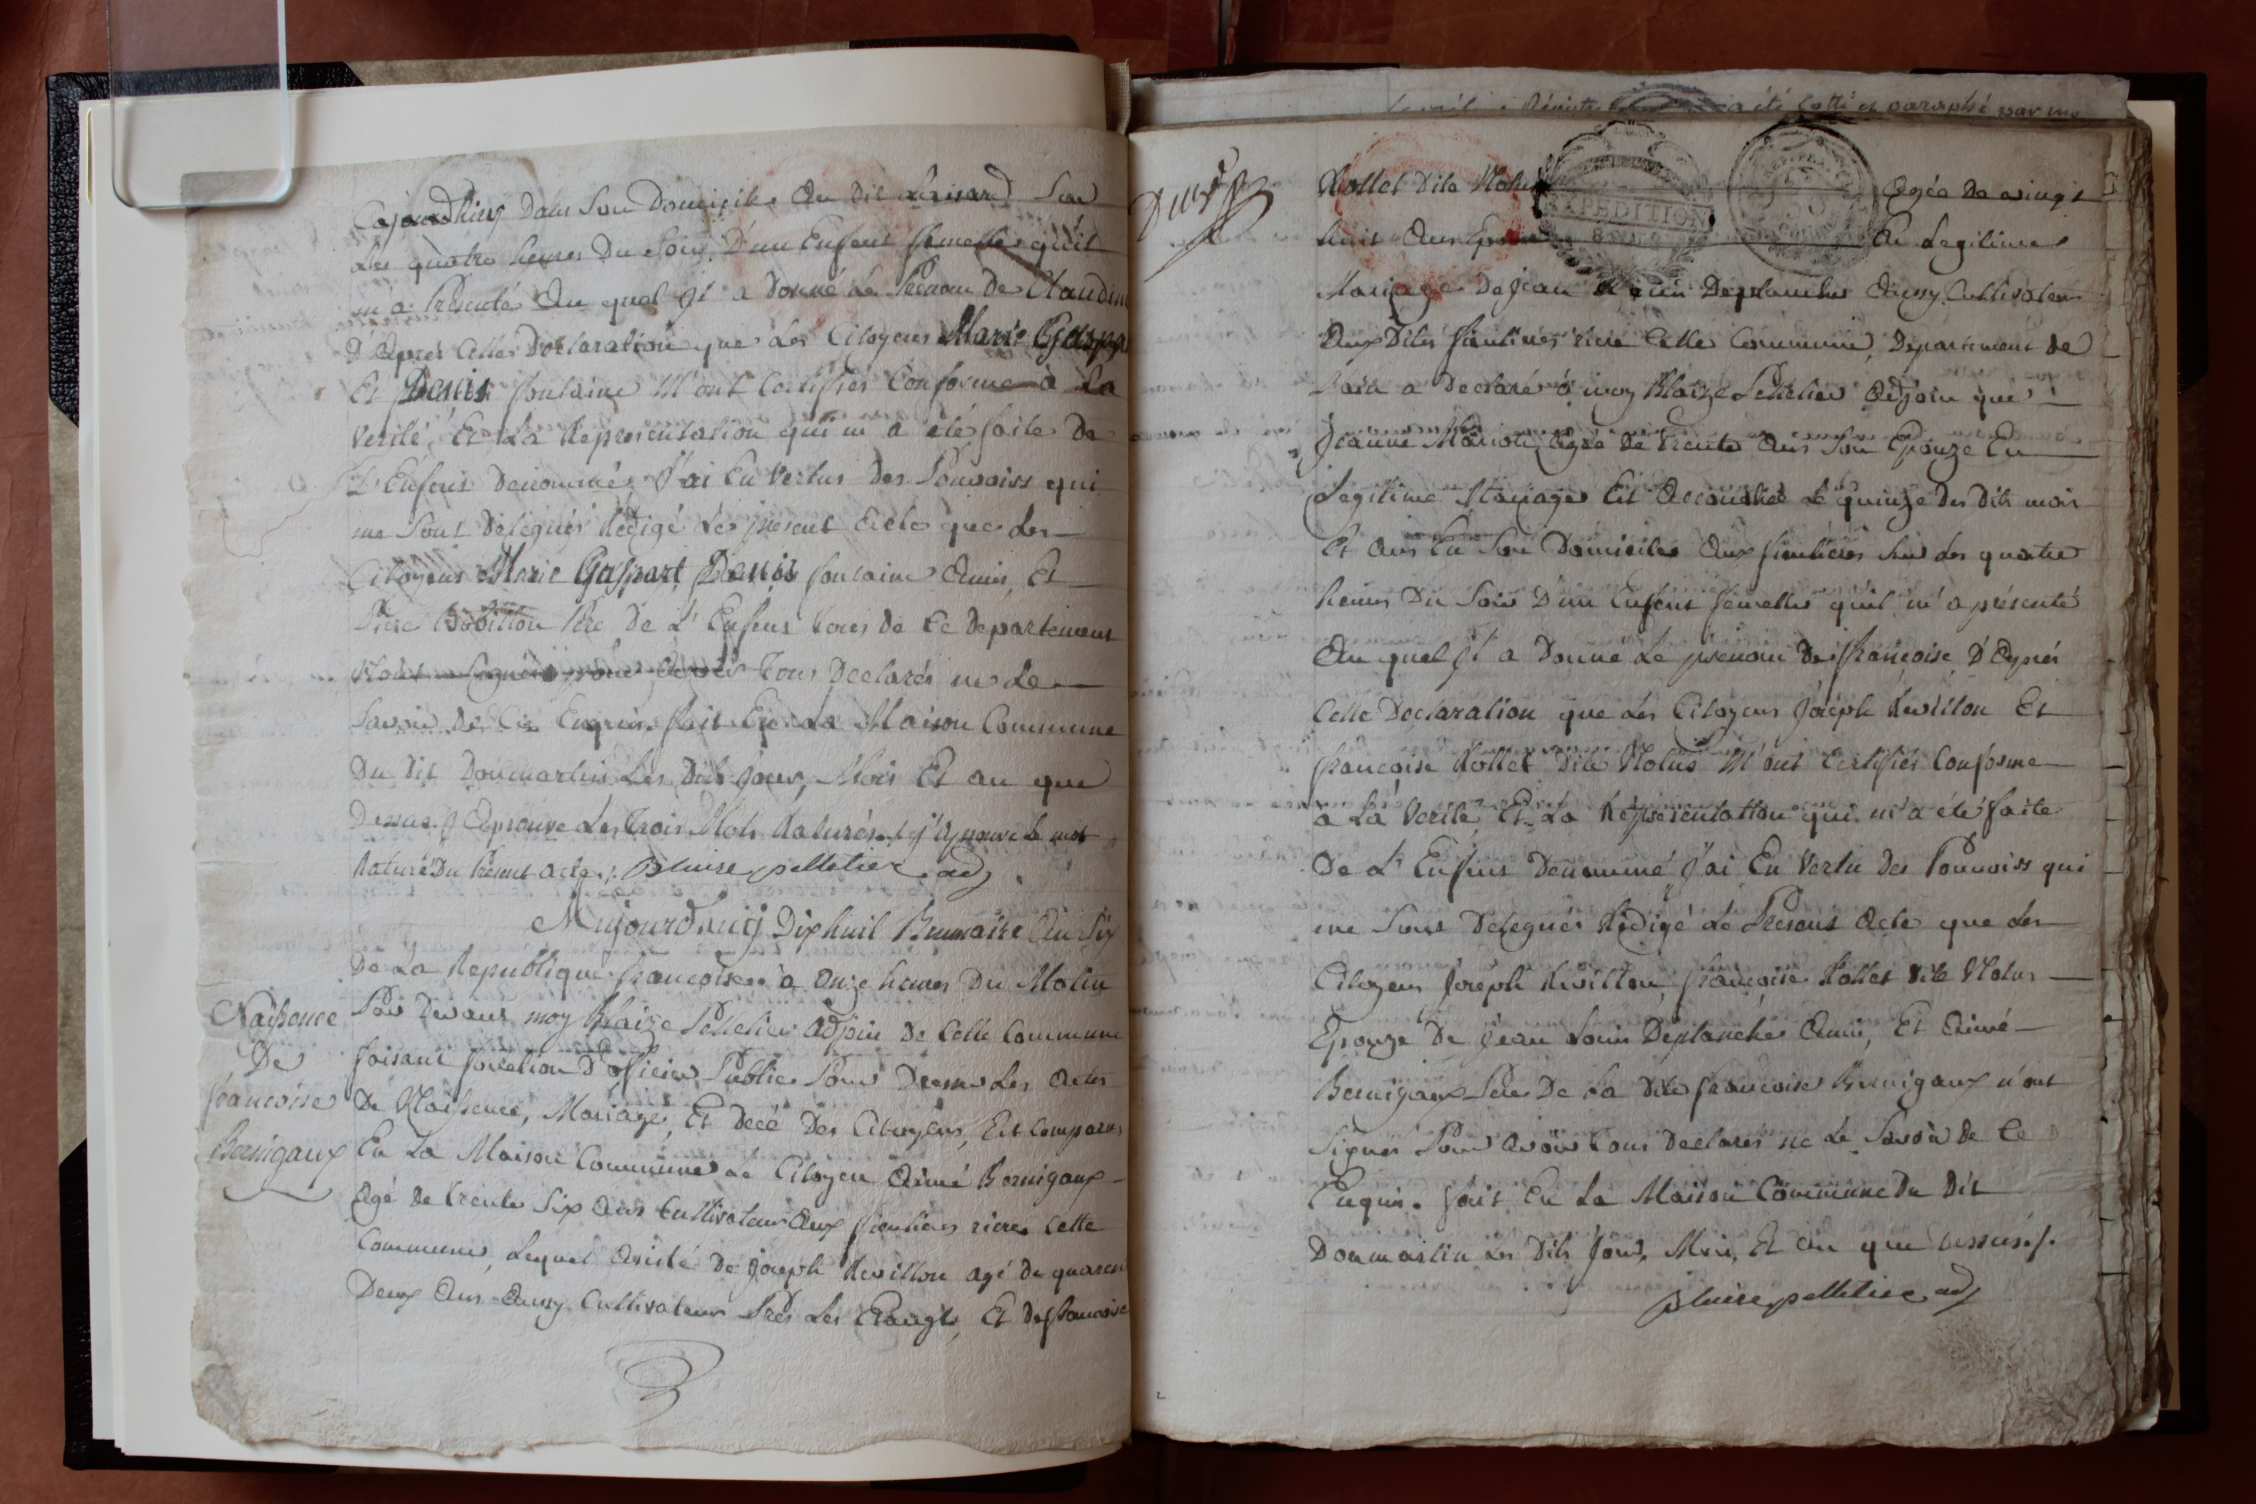 Cejourdhuy Dans Son Domicile Au Dit Sur
Les quatre heures Du Soir, D'un Enfent femelle qu'il
m'a Présenté Au quel Jl a Donné Le Prenom De Claudine
D'Aprés Cette Declaration que Les Citoyens Marie Gaspa
Et Denis fontaine M'ont Certifiés Conforme à La
Verité, Et La Representation qui m'a été faite De
L'Enfens Denommé, J'ai En Vertus Des Pouvoirs qui
me Sont Délegués Redigé Le present Acte que Les
Citoyens Marie Gaspart, Denis fontaine Amis, Et
Pere De L'Enfens tous de Ce departement
tous Declarés ne Le
Savoir De Ce Enquis. fait En La Maison Commune
Du Dit Donmartin Les Dits Jour, Mois Et an que
Dessus. J'Aprouve Les trois Mots Raturés. et J'aprouve le mot
Raturé Du Présent acte. Blaise pelletier adj
Aujourdhuij Dixhuit Brumaire An Six
De La Republique francoise à onze heures Du Matin
Par Devant moy Blaize Pelletier Adjoin De Cette Commune
faisant fonction D'officier Public Pour Dresser Les Actes
De Naissence, Mariage, Et Decé Des Citoyens, Est Comparus
En La Maison Commune Le Citoyen Aimé Bernigaux
Agé De trente Six Ans Cultivateur Aux riere Cette
Commune, Lequel Asisté De Joseph Revillon agé De quarente
Deux Ans Aussy Cultivateur Prés Les Etangts, Et De francoise
Naissence
De
francoise
Bernigaux
Registre a été Cotté et paraphé par
EXPEDITION
Rollet Dite Agée De vingt
huit Ans En Legitime
Mariage De Jean Louis Deplanche Aussy Cultivateur
Aux Dites riere Cette Commune, Departement De
a Declaré à moy Blaize Pelletier Adjoin que
Jeanne Marion, Agée De trente Ans Son Epouze En
Legitime Mariage Est Accouchée Le quinze Des Dits mois
Et Ans En Son Domicile Aux Sur Les quatre
heures Du Soir D'un Enfent femelle qu'il m'a présenté
Au quel Jl a Donné Le prenom De francoise D'Aprés
Cette Declaration que Les Citoyens Joseph Revillon Et
francoise Rollet Dite M'ont Certifiés Conforme
a La Verité Et La Representation qui m'a été faite
De L'Enfens Denommé J'ai En Vertu Des Pouvoirs qui
me Sont Delegués Redigé Le Present Acte que Les
Citoyens Joseph Revillon, francoise Rollet Dite
Epouze De Jean Louis Deplanche Amis, Et Aimé
Bernigaux Pere De La Dite francoise Bernigaux n'ont
Signer Pour Avoir tous Declarés ne Le Savoir De Ce
Enquis. fait En La Maison Commune Du Dit
Donmartin Les Dits Jour, Mois, Et An que Dessus.
Blaise pelletier adj